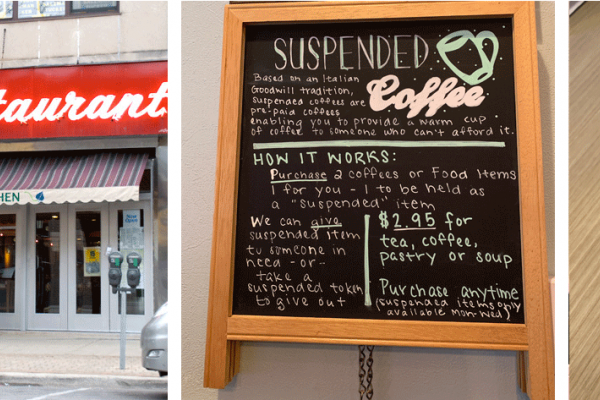 taurant
HEN
Now
Open
SUSPENDED
Coffee
Based on an Italian
Goodwill tradition,
suspended coffees are
pre-paid coffees
enabling you to provide a warm cup
of coffee to someone who can't afford it.
HOW IT WORKS:
Purchase 2 coffees or Food Items
1 for you - 1 to be held as
a "suspended" item
We can give
suspended item
to someone in
need -or-
take a
suspended token
to give out
$2.95 for
tea, coffee,
pastry or soup
Purchase anytime
(suspended items only
available Mon-Wed)